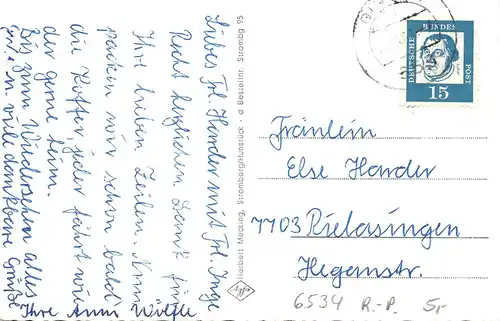 Liebes Frl. Harder mit Frl. Inge
Recht herzlichen Dank für
Ihre lieben Zeilen. Nun
packen wir schon bald
die Koffer, jeder fährt wie-
der gerne heim.
Bis zum Wiedersehen alles
Gute u. viele dankbare Grüße
Ihre Anni
Herbert Mecking, Stromberg/Hunsrück - Bestellnr. Stromberg 95
Agfa
DEUTSCHE
BUNDES
POST
15
Fräulein
Else Harder
7703 Rielasingen
Hegaustr.
6534 R.-P. 5,-